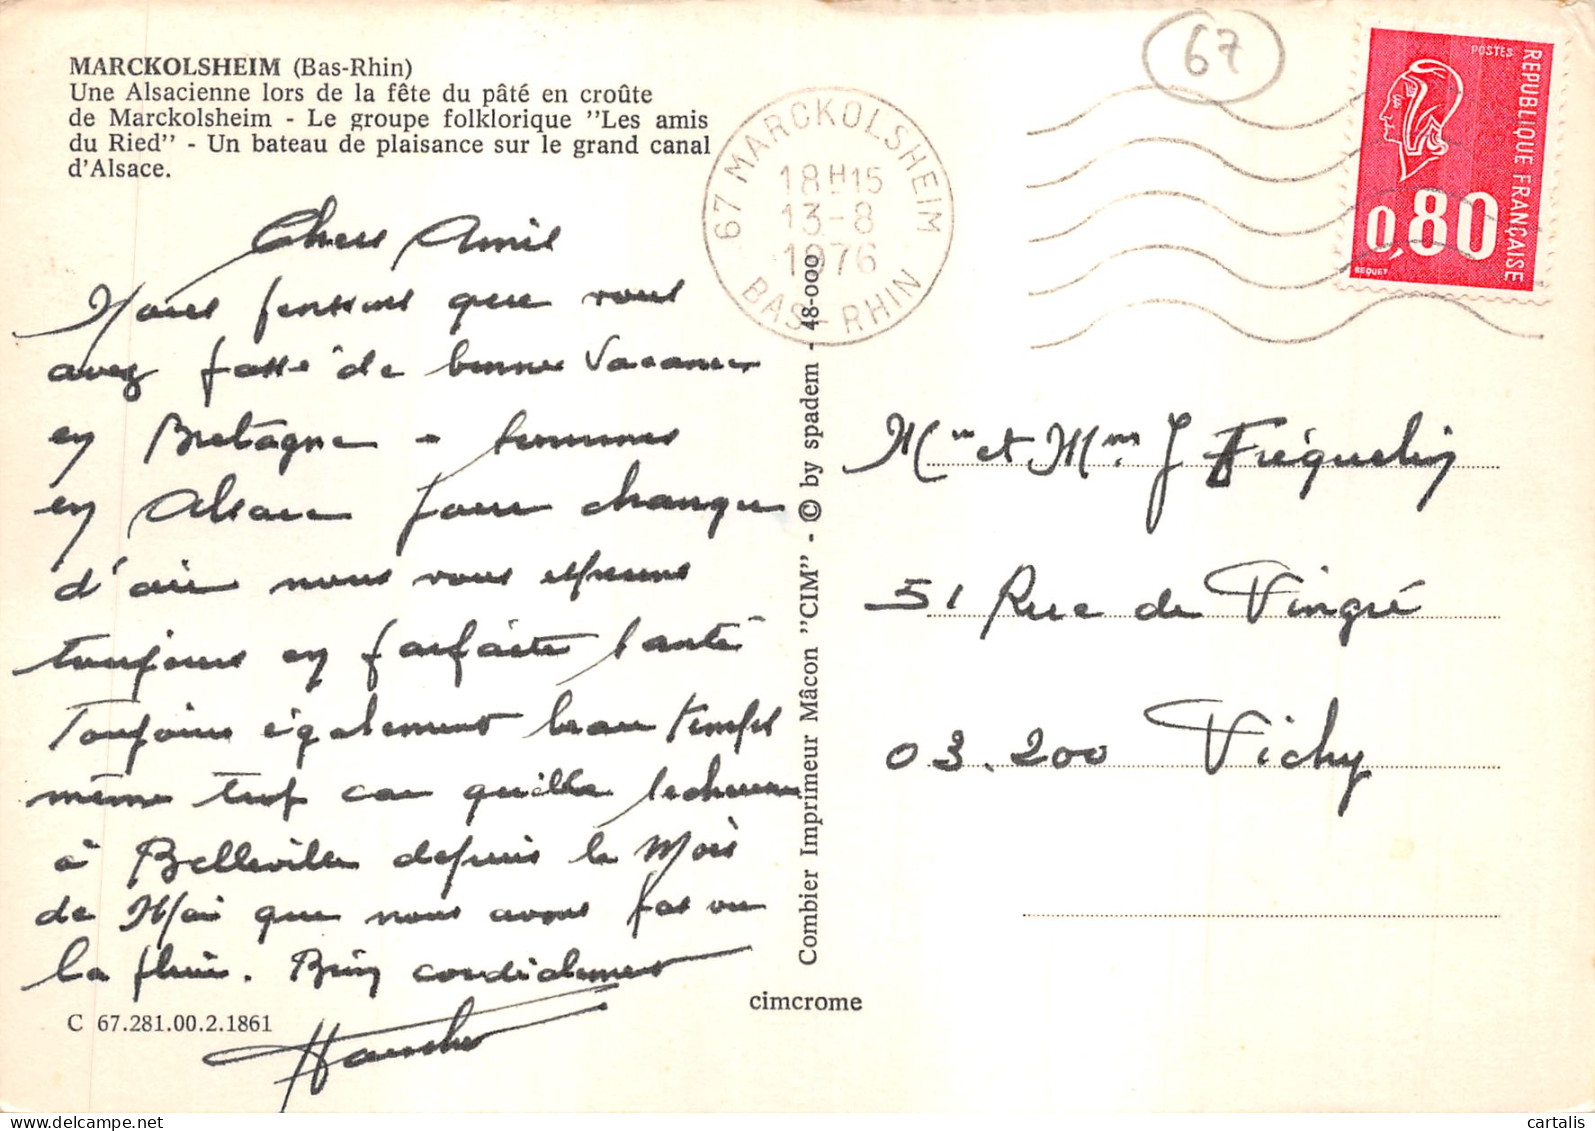 MARCKOLSHEIM (Bas-Rhin)
Une Alsacienne lors de la fête du pâté en croûte
de Marckolsheim - Le groupe folklorique "Les amis
du Ried" - Un bateau de plaisance sur le grand canal
d'Alsace.
Chers Amis
Nous pensons que vous
avez passé de bonnes vacances
en Bretagne - sommes
en Alsace pour changer
d'air nous vous espérons
toujours en parfaite santé
Toujours également beau temps
même trop car quelle sécheresse
à Belleville depuis le Mois
de Mai que nous avons pas vu
la pluie. Bien cordialement
C 67.281.00.2.1861
cimcrome
Combier Imprimeur Mâcon "CIM" - © by spadem - 48-000
67 MARCKOLSHEIM
18H15
13-8
1976
BAS-RHIN
67
POSTES
REPUBLIQUE FRANÇAISE
0,80
BEQUET
Mr et Mme J Fréquelin
51 Rue de Vingré
03.200 Vichy
cartalis.com